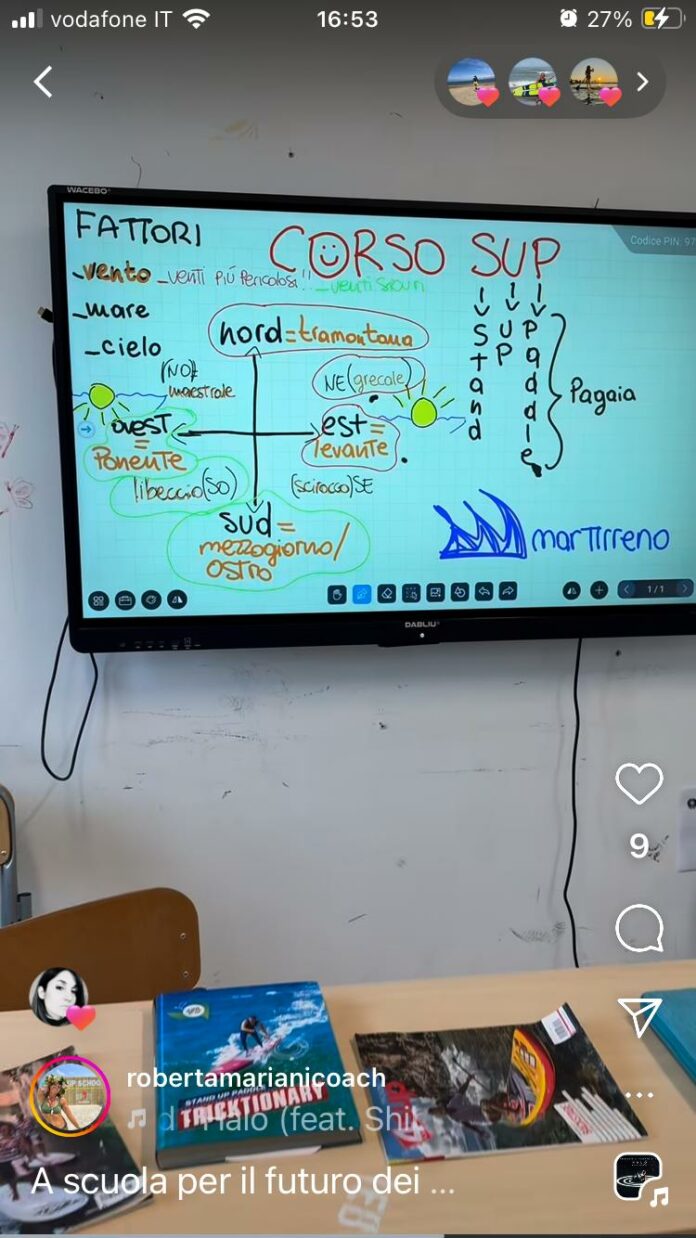 vodafone IT
16:53
27%
WACEBO
FATTORI
CORSO SUP
Codice PIN: 97
-vento -venti più pericolosi!!
-mare
-cielo
nord=tramontana
(NO)
maestrale
NE(grecale)
ovest
=
Ponente
est=
levante
libeccio(SO)
(scirocco)SE
sud=
mezzogiorno/
ostro
Stand
UP
Paddle
Pagaia
mar Tirreno
1/1
DABLIU
9
STAND UP PADDLE
TRICKTIONARY
robertamarianicoach
Halo (feat. Shi
A scuola per il futuro dei ...